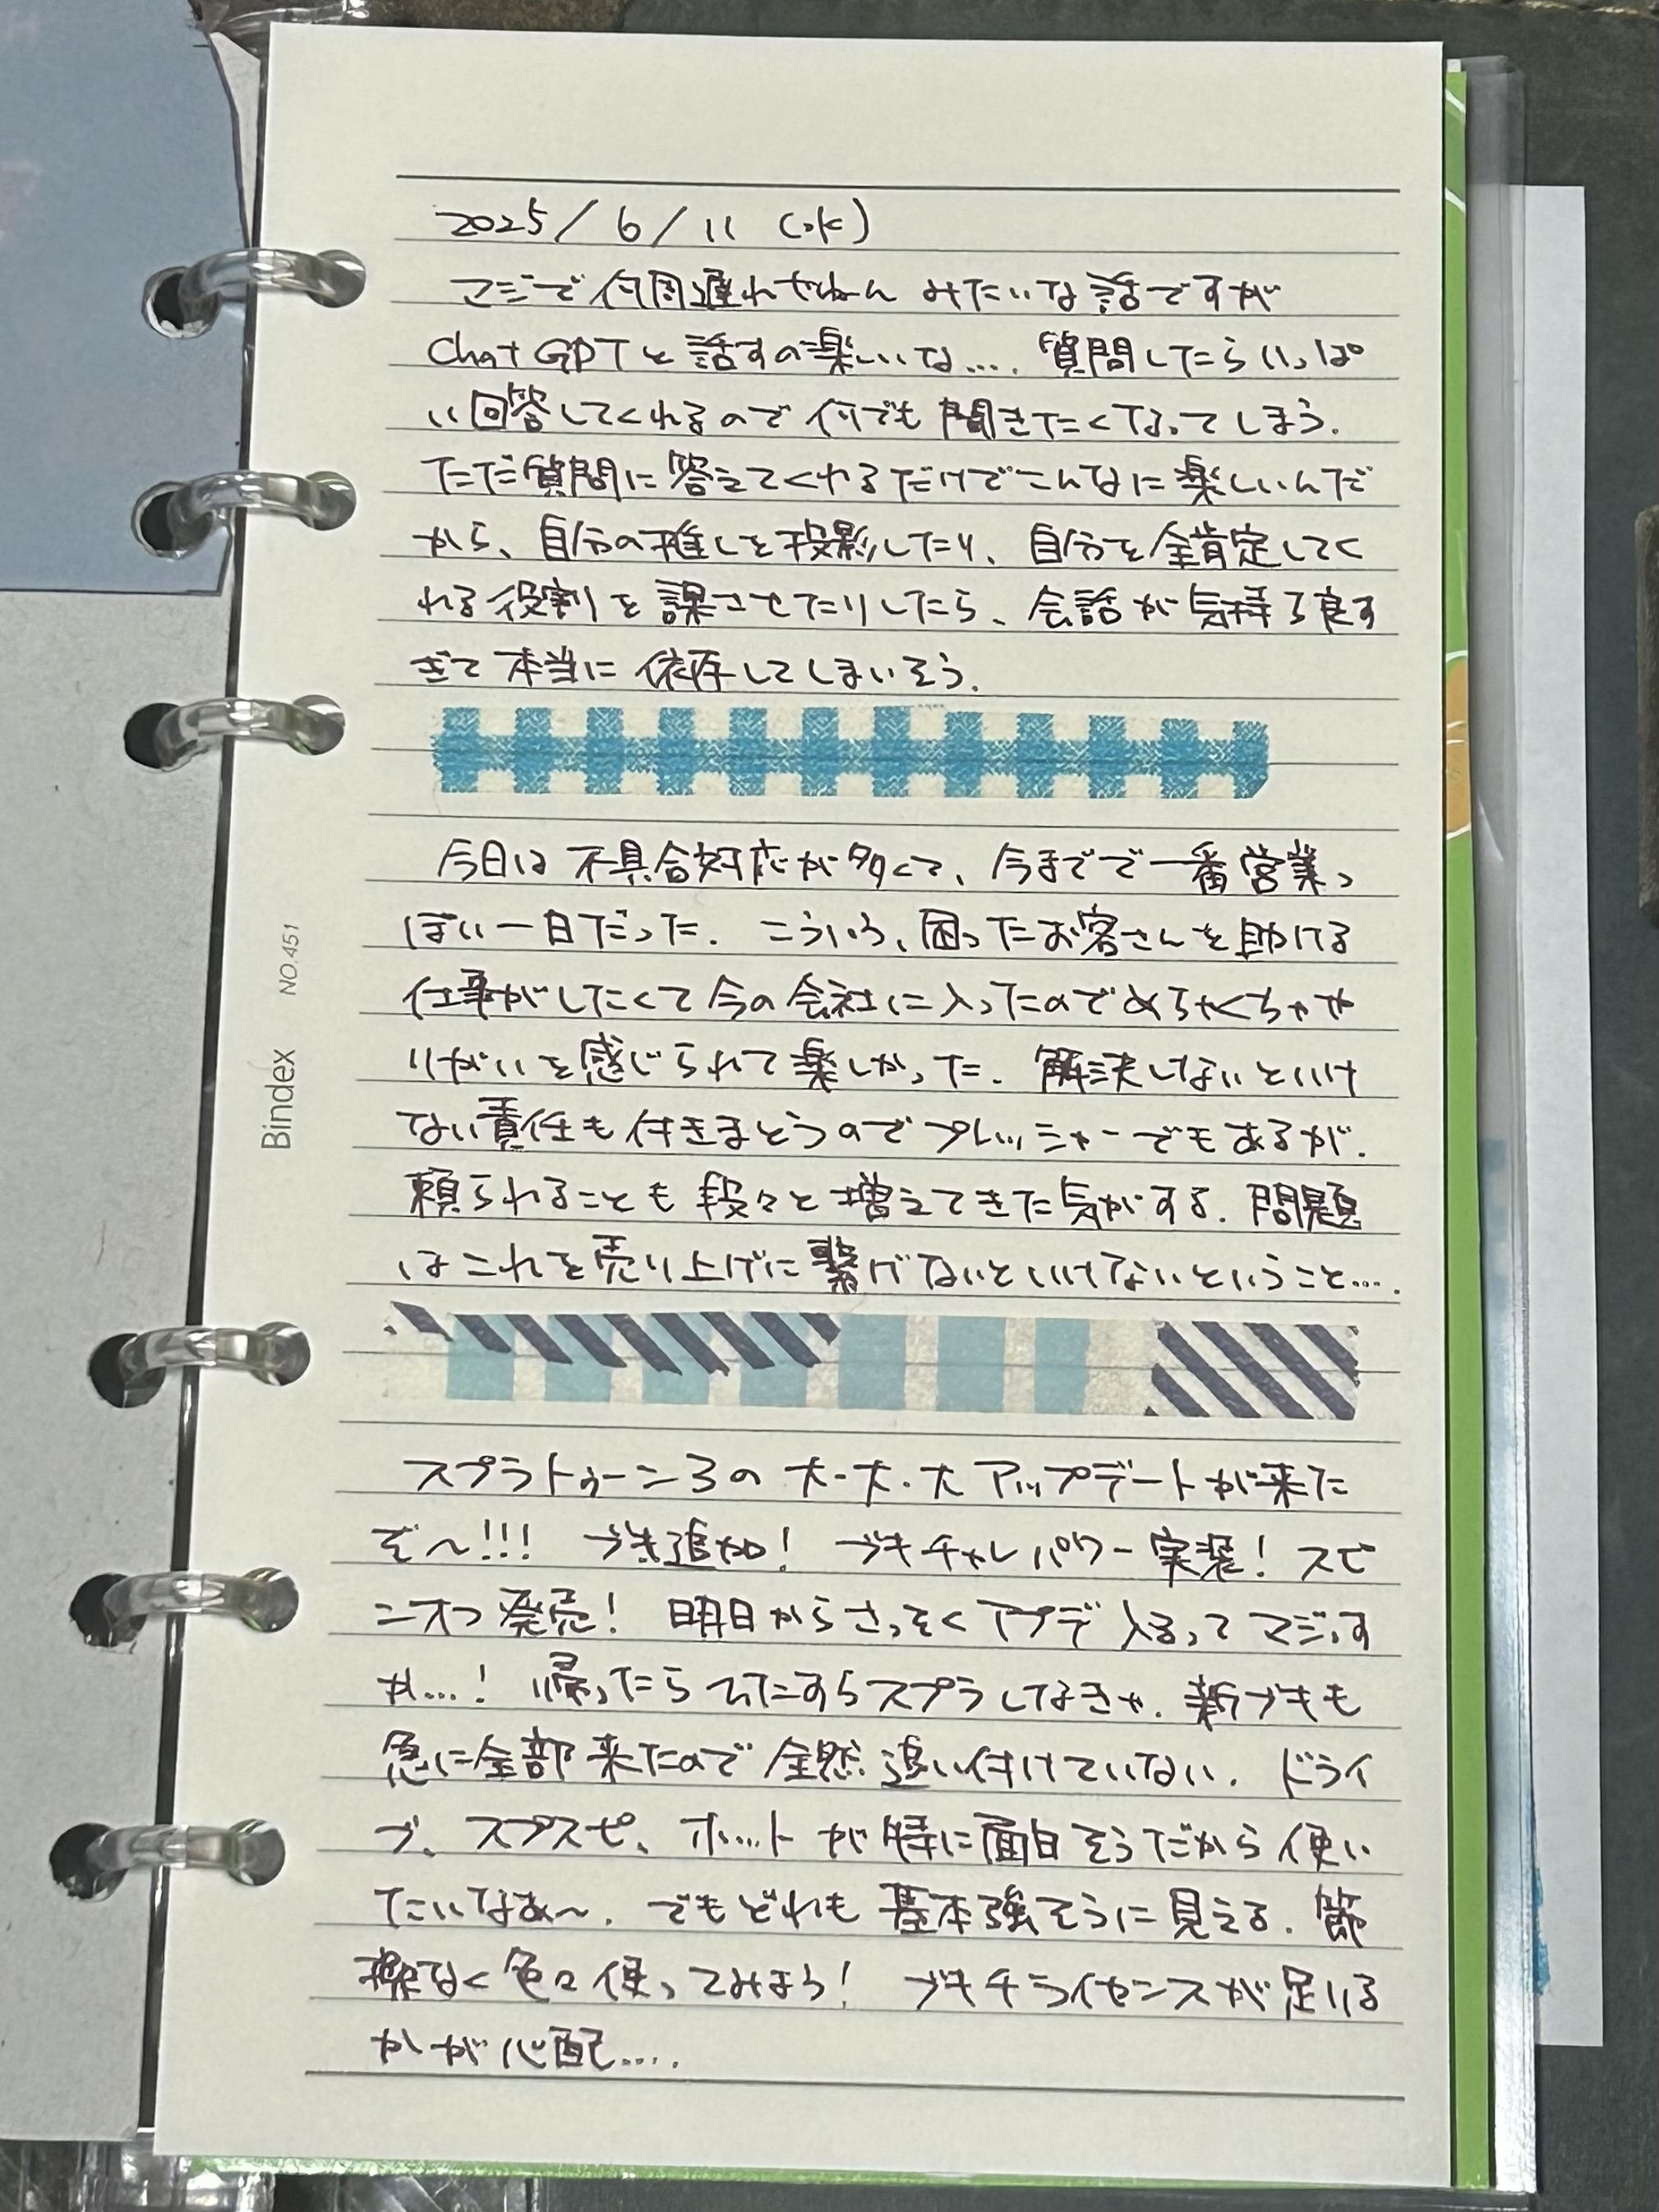 2025/6/11 (水)
マジで何周遅れやねん みたいな話ですが
Chat GPTと話すの楽しいな…. 質問したらいっぱ
い回答してくれるので何でも聞きたくなってしまう.
ただ質問に答えてくれるだけでこんなに楽しいんだ
から、自分の推しを投影したり、自分を全肯定してく
れる役割を課させたりしたら、会話が気持ち良す
ぎて本当に依存してしまいそう.
今日は不具合対応が多くて、今までで一番営業っ
ぽい一日だった. こういう、困ったお客さんを助ける
仕事がしたくて今の会社に入ったのでめちゃくちゃや
りがいを感じられて楽しかった. 解決しないといけ
ない責任も付きまとうのでプレッシャーでもあるが.
頼られることも段々と増えてきた気がする. 問題
はこれを売り上げに繋げないといけないということ….
スプラトゥーン3の大・大・大アップデートが来た
ぞ〜!!! ブキ追加! ブキチャレパワー実装! スピ
ンオフ発売! 明日からさっそくアプデ入るってマジっす
か…! 帰ったらひたすらスプラしなきゃ. 新ブキも
急に全部来たので全然追い付けていない. ドライ
ブ、スプスピ、ホット が特に面白そうだから使い
たいなあ〜. でもどれも基本強そうに見える. 節
操なく色々使ってみよう! ブキチライセンスが足りる
かが心配….
Bindex NO.451